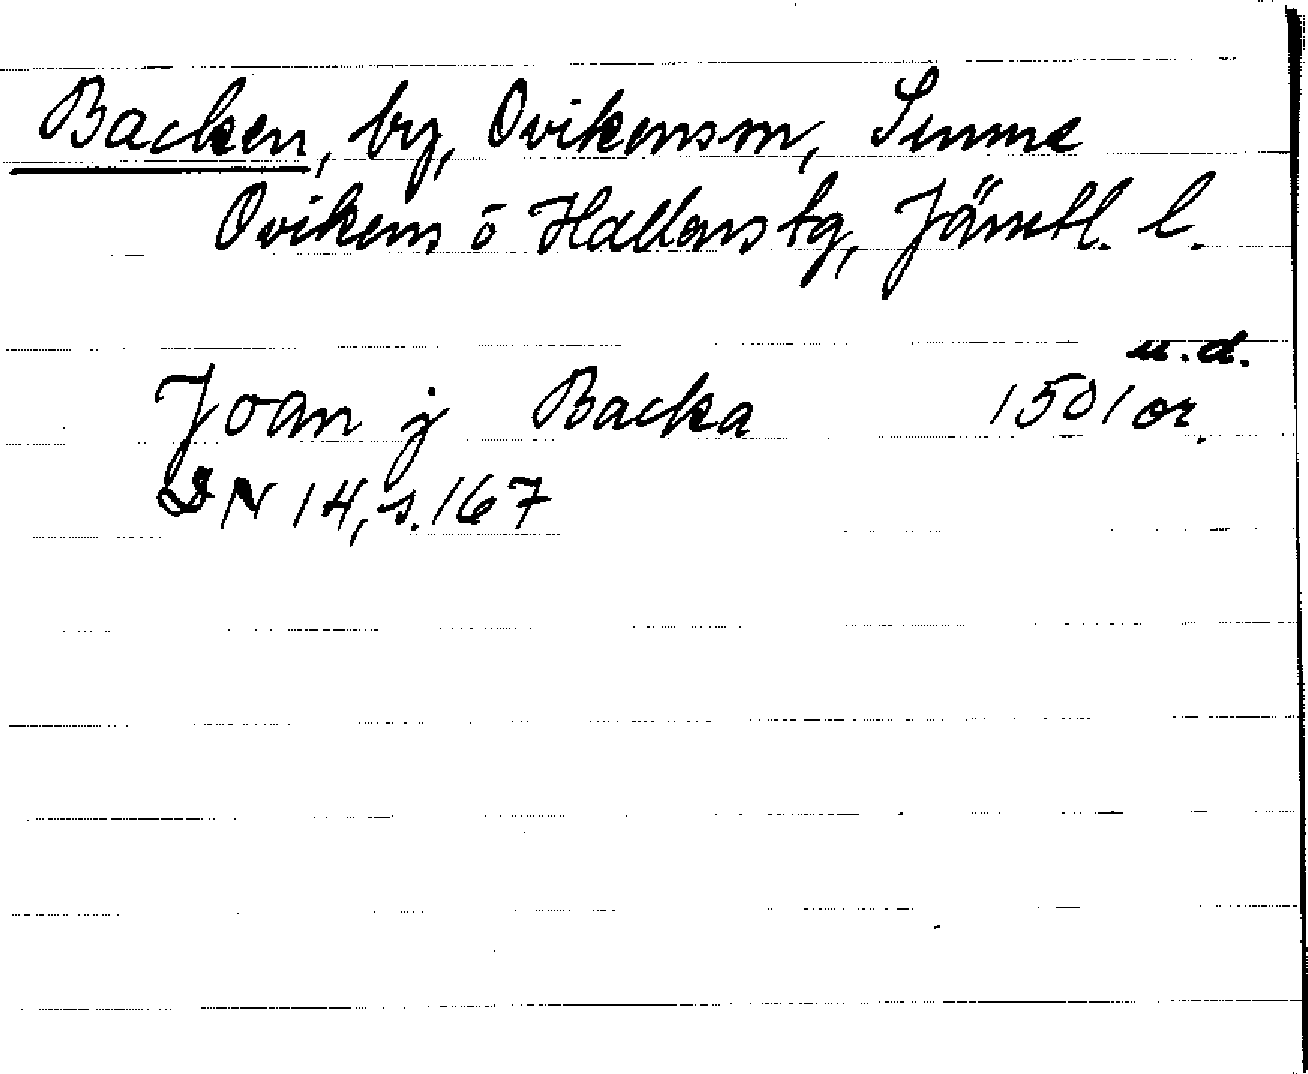 Backen, by, Ovikens sn, Sunne
Ovikens o Hallens tg, Jämtl. l.
u.d.
Joan j Backa 1501 or.
DN 14, s. 167